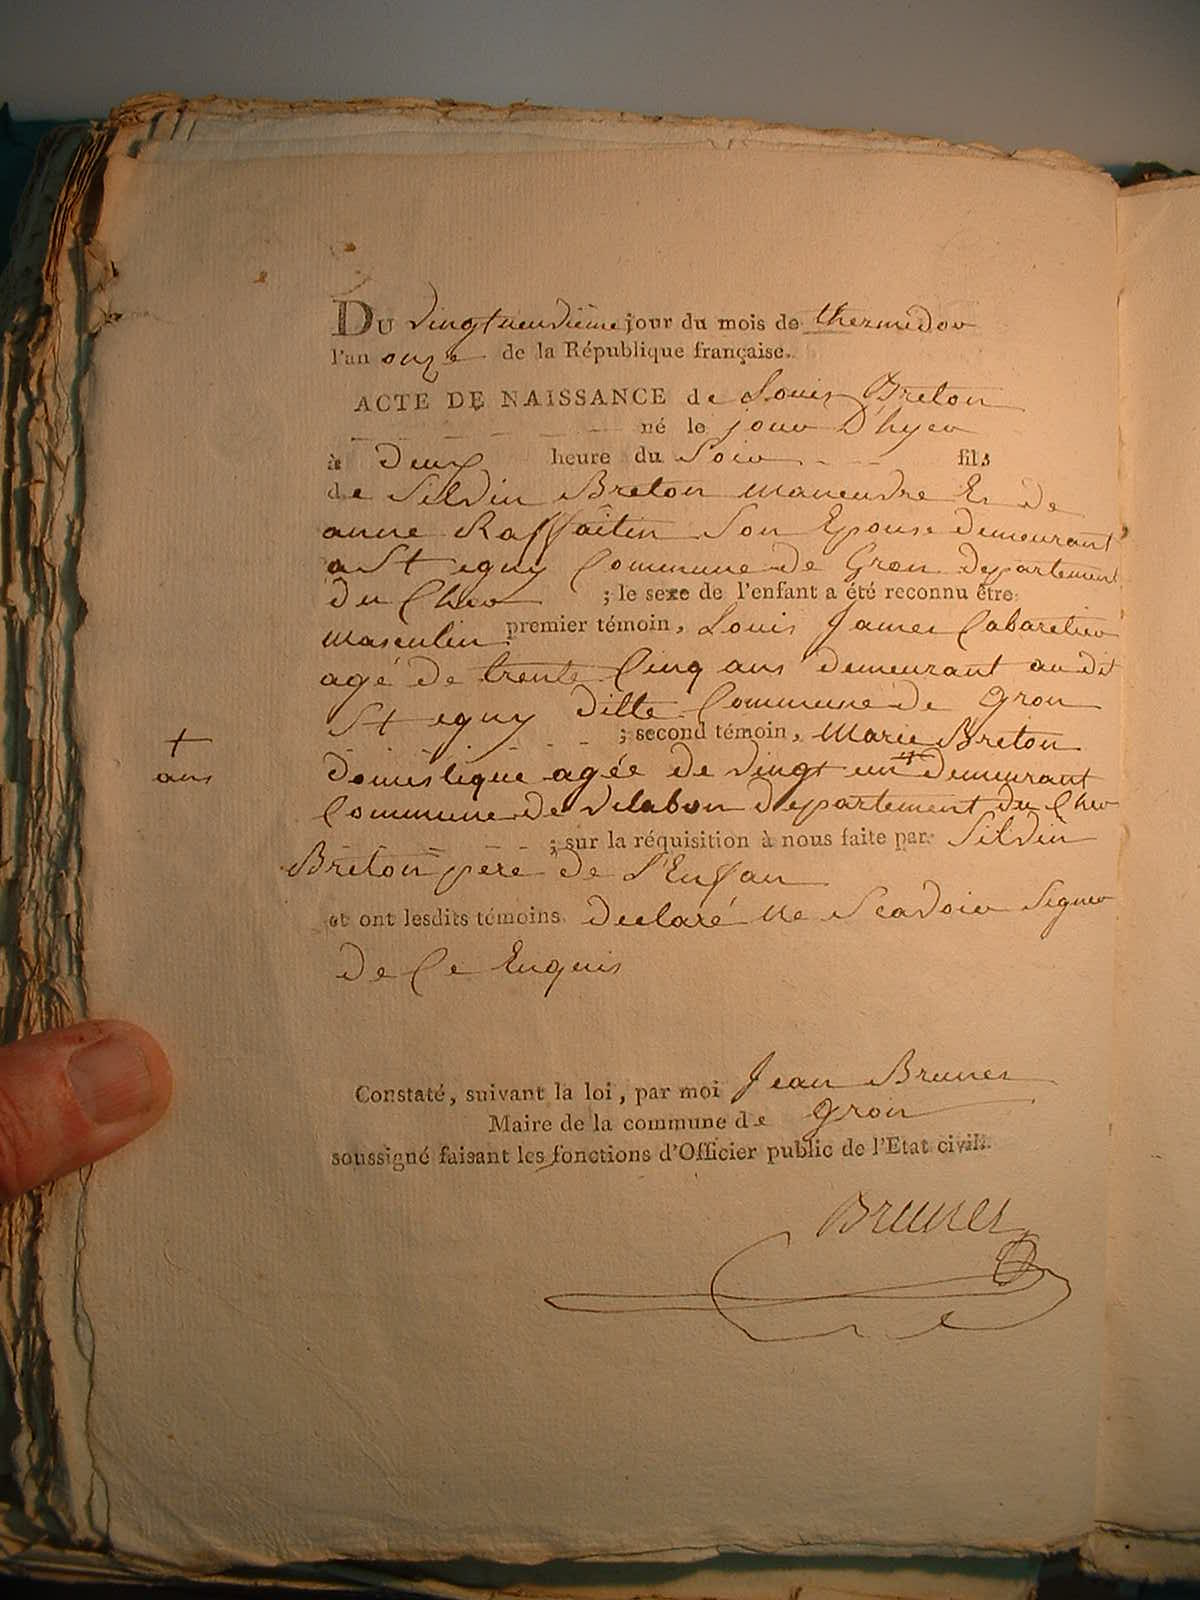 DU vingt neuvième jour du mois de thermidor
l'an onze de la République française.
ACTE DE NAISSANCE de Louis Breton
né le jour D'hyer
à Deux heure du Soir fils
de Silvin Breton maneuvre Et de
anne Raffaitin Son Epouse demeurant
a St iguy Commune de Gron departement
du Cher ; le sexe de l'enfant a été reconnu être
masculin premier témoin, Louis James Cabaretier
agé de trente Cinq ans demeurant au dit
St iguy ditte Commune de gron
; second témoin, Marie Breton
+
ans
Domestique agée de vingt un + demeurant
Commune de vilabon departement du Cher
; sur la réquisition à nous faite par Silvin
Breton pere de L'Enfan
et ont lesdits témoins declaré ne Scavoir Signer
de Ce Enquis
Constaté, suivant la loi, par moi Jean Brunet
Maire de la commune de gron
soussigné faisant les fonctions d'Officier public de l'Etat civil.
Brunet